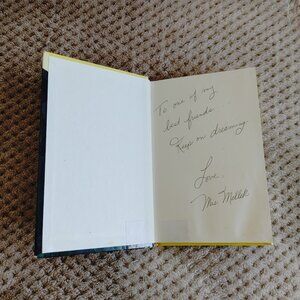 To one of my
best friends.
Keep on dreaming.
Love,
Mrs Mellek